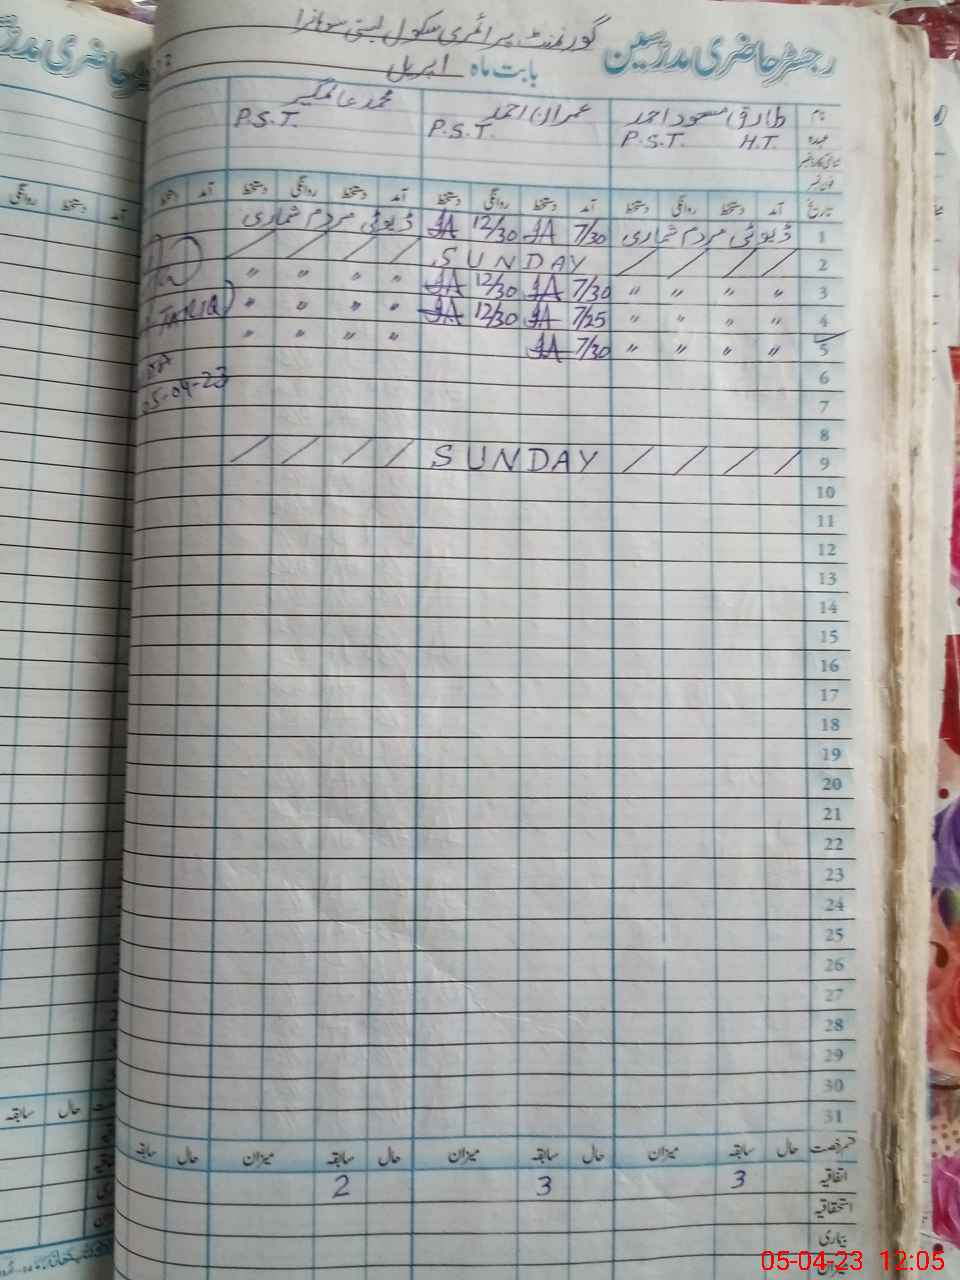 رجسٹر حاضری مدرسین گورنمنٹ پرائمری سکول بستی
بابت ماہ اپریل
نام طارق مسعود احمد عمران احمد محمد عالمگیر
عہدہ P.S.T. H.T. P.S.T. P.S.T.
فون نمبر
تاریخ آمد دستخط روانگی دستخط آمد دستخط روانگی دستخط آمد دستخط روانگی دستخط آمد
1 ڈیوٹی مردم شماری 7/30 JA 12/30 JA ڈیوٹی مردم شماری
2 / / / / SUNDAY / / / /
3 〃 〃 〃 〃 7/30 JA 12/30 JA 〃 〃 〃 〃
4 〃 〃 〃 〃 7/25 JA 12/30 JA 〃 〃 〃 〃 TARIQ
5 〃 〃 〃 〃 7/30 JA 〃 〃 〃 〃
6 05-04-23
7
8
9 / / / / SUNDAY / / / /
10
11
12
13
14
15
16
17
18
19
20
21
22
23
24
25
26
27
28
29
30
31
قسم رخصت حال سابقہ میزان حال سابقہ میزان حال سابقہ میزان حال سابقہ
اتفاقیہ 3 3 2
استحقاقیہ
بیماری
میزان
05-04-23 12:05